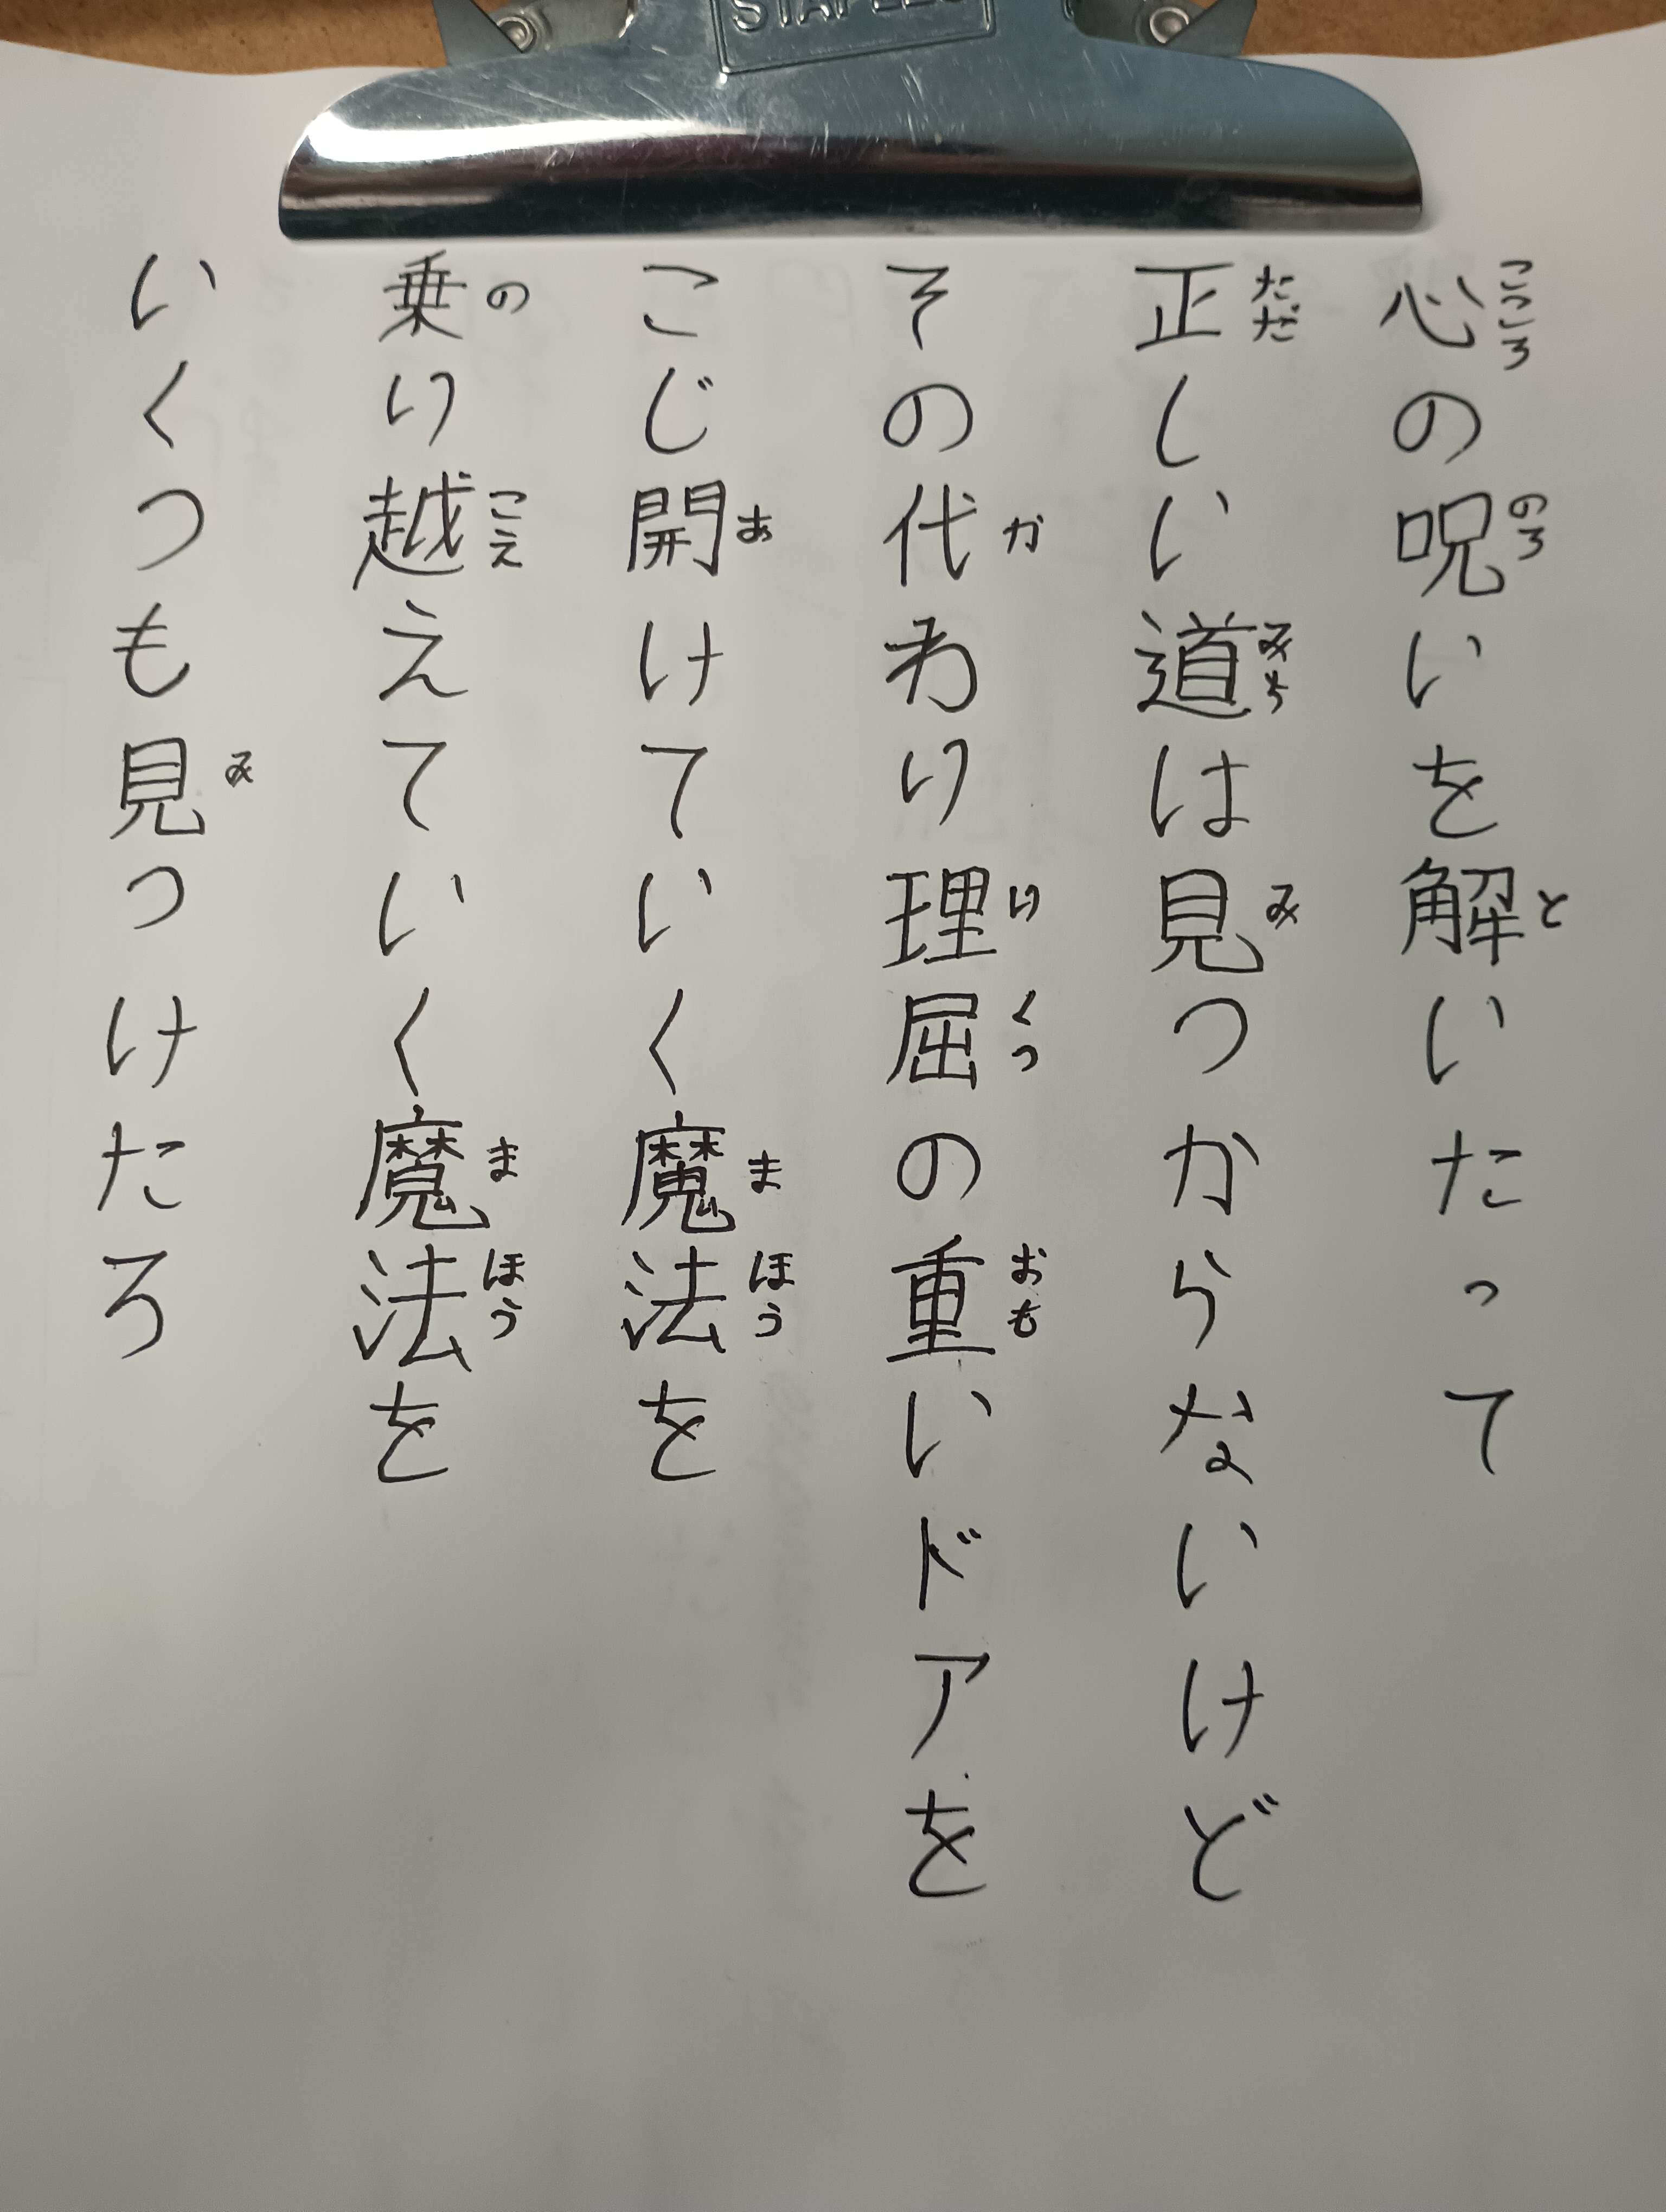 STAPLES
こころ のろ と
心の呪いを解いたって
ただ みち み
正しい道は見つからないけど
か り くつ おも
その代わり理屈の重いドアを
あ ま ほう
こじ開けていく魔法を
の こえ ま ほう
乗り越えていく魔法を
み
いくつも見つけたろ